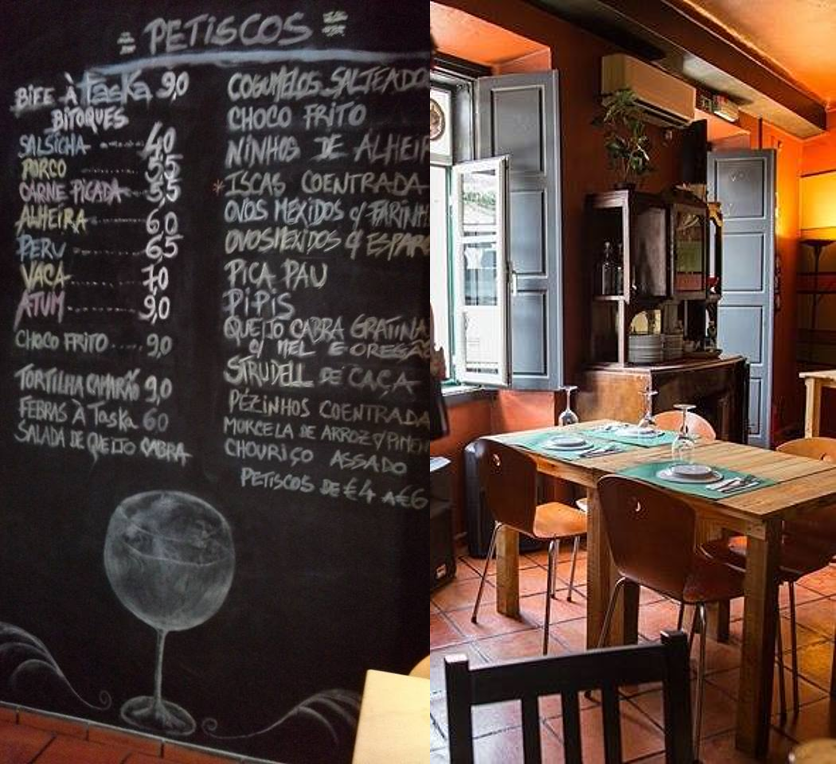 = PETISCOS =
BIFE À Taska 9,0
BITOQUES
SALSICHA 4,0
PORCO 5,5
CARNE PICADA 5,5
ALHEIRA 6,0
PERU 6,5
VACA 7,0
ATUM 9,0
CHOCO FRITO .... 9,0
TORTILHA CAMARÃO 9,0
FEBRAS À Taska 60
SALADA DE QUEIJO CABRA
COGUMELOS SALTEADO
CHOCO FRITO
NINHOS DE ALHEIR
*ISCAS COENTRADA
OVOS MEXIDOS C/ FARINH
OVOS MEXIDOS C/ ESPAR
PICA PAU
PIPIS
QUEIJO CABRA GRATINA
C/ MEL E OREGÃO
STRUDELL DE CAÇA
PÉZINHOS COENTRADA
MORCELA DE ARROZ C/ PIMEN
CHOURIÇO ASSADO
PETISCOS DE €4 A €6